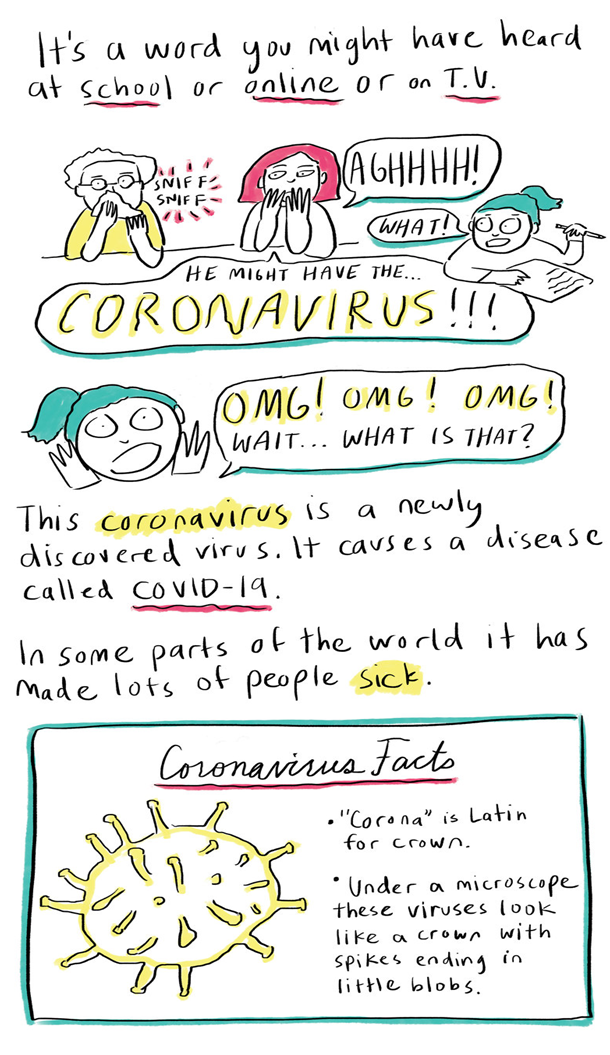 It's a word you might have heard
at school or online or on T.V.
SNIFF
SNIFF
AGHHHH!
WHAT!
HE MIGHT HAVE THE...
CORONAVIRUS!!!
OMG! OMG! OMG!
WAIT... WHAT IS THAT?
This coronavirus is a newly
discovered virus. It causes a disease
called COVID-19.
In some parts of the world it has
made lots of people sick.
Coronavirus Facts
• "Corona" is Latin
for crown.
• Under a microscope
these viruses look
like a crown with
spikes ending in
little blobs.